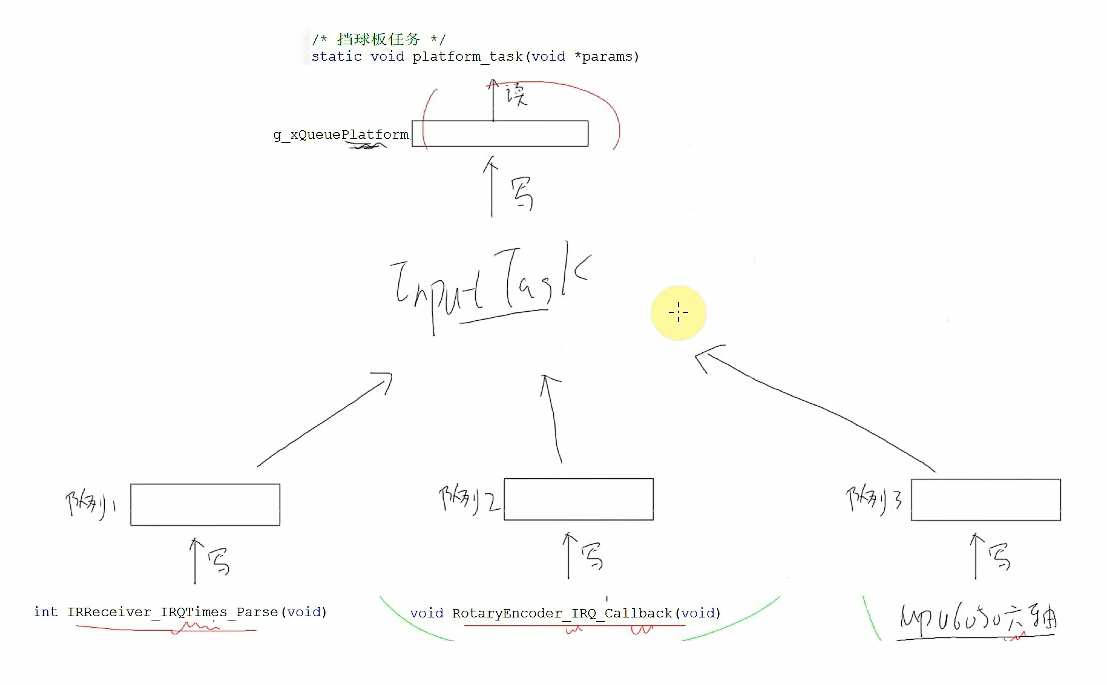 /* 挡球板任务 */
static void platform_task(void *params)
读
g_xQueuePlatform
写
Input Task
队列1
队列2
队列3
写
写
写
int IRReceiver_IRQTimes_Parse(void)
void RotaryEncoder_IRQ_Callback(void)
MPU6050六轴